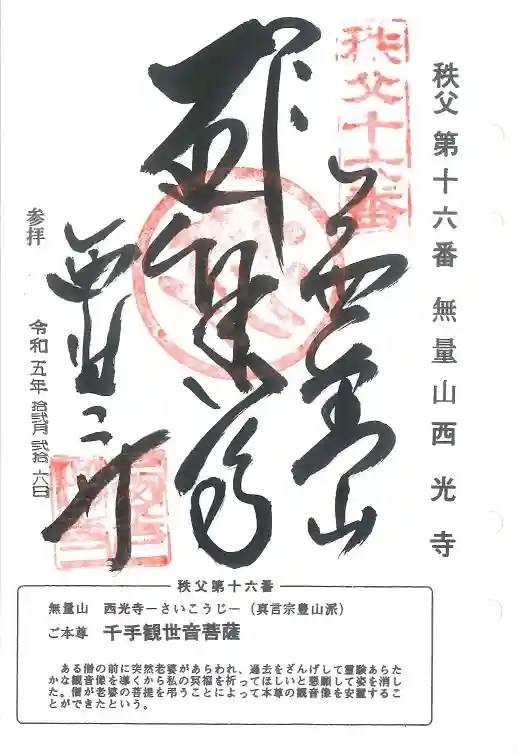 秩父第十六番 無量山西光寺
秩父十六番
無量山
西光寺
参拝
令和五年拾弐月弐拾六日
秩父第十六番
無量山 西光寺−さいこうじ−（真言宗豊山派）
ご本尊 千手観世音菩薩
ある僧の前に突然老婆があらわれ、過去をざんげして霊験あらた
かな観音像を導くから私の冥福を祈ってほしいと懇願して姿を消し
た。僧が老婆の菩提を弔うことによって本尊の観音像を安置するこ
とができたという。